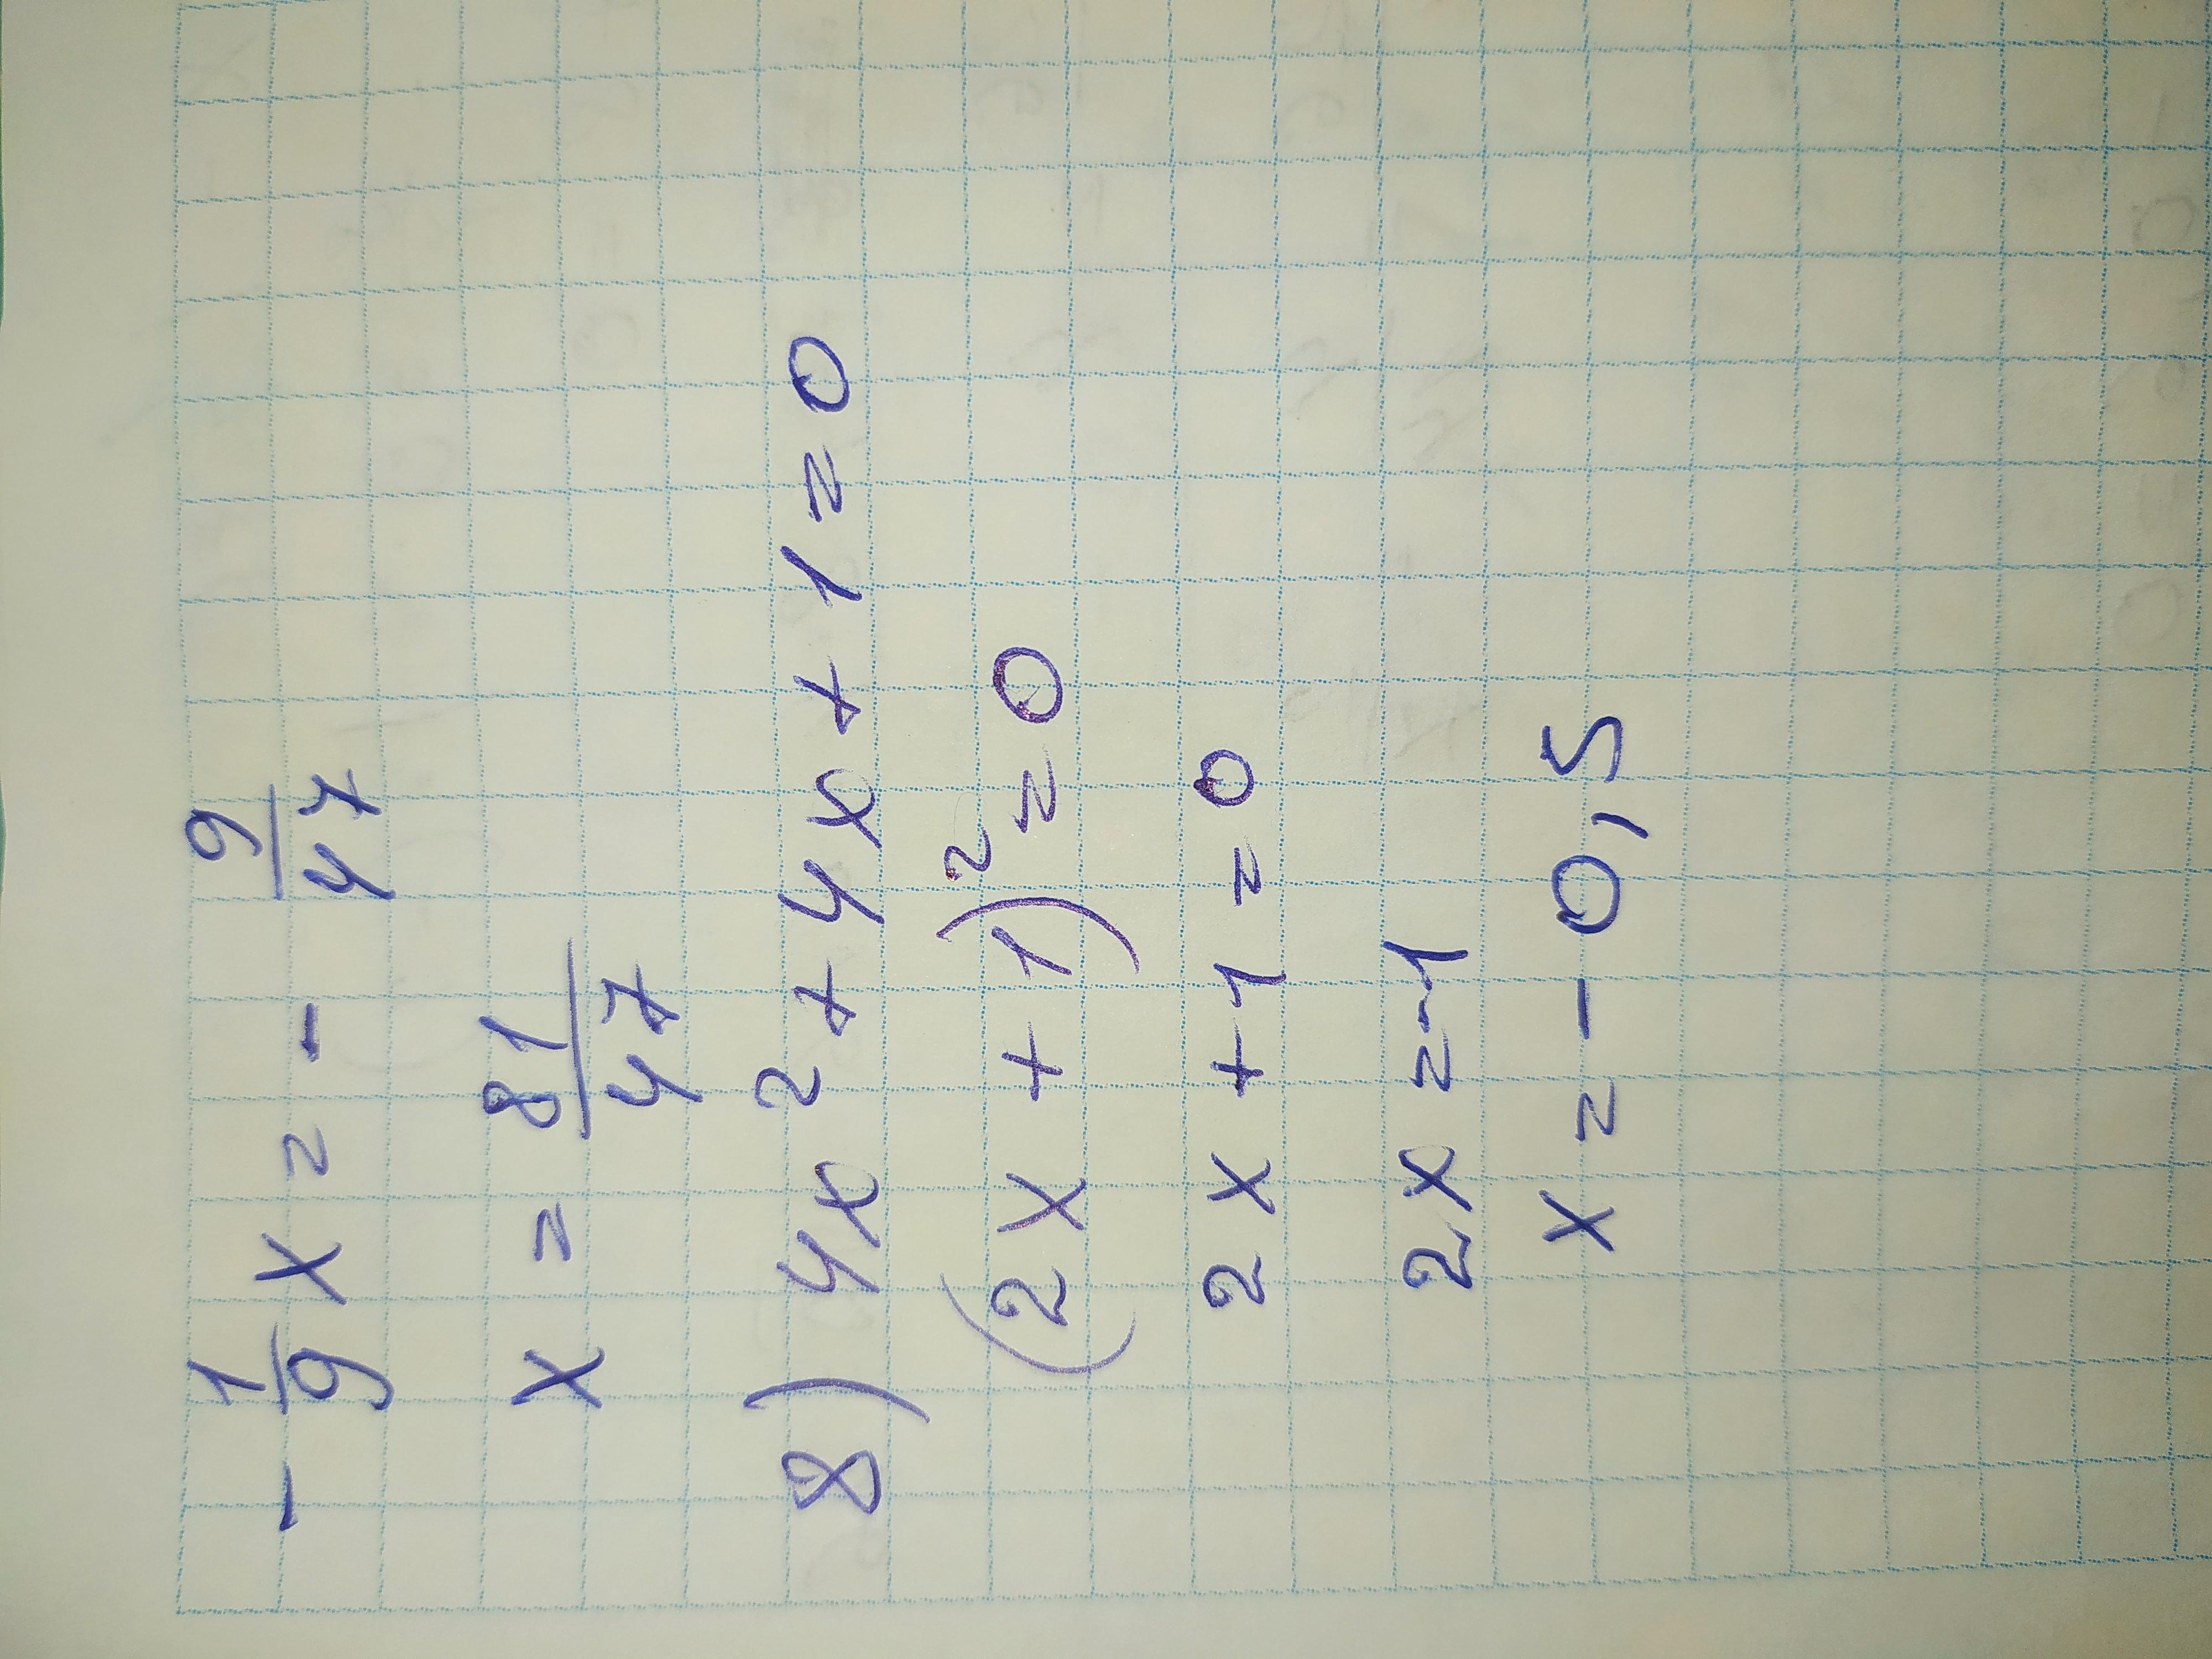 -1/9 x = - 9/47
x = 81/47
8) 4x² + 4x + 1 = 0
(2x + 1)² = 0
2x + 1 = 0
2x = -1
x = - 0,5